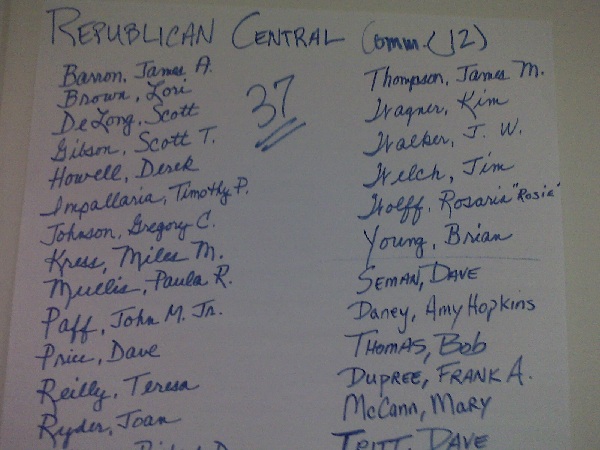 REPUBLICAN CENTRAL Comm. (12)
37
Barron, James A.
Brown, Lori
DeLong, Scott
Gibson, Scott T.
Howell, Derek
Impallaria, Timothy P.
Johnson, Gregory C.
Kress, Miles M.
Mullis, Paula R.
Paff, John M. Jr.
Price, Dave
Reilly, Teresa
Ryder, Joan
Thompson, James M.
Wagner, Kim
Walker, J. W.
Welch, Jim
Wolff, Rosaria "Rosia"
Young, Brian
SEMAN, DAVE
Daney, Amy Hopkins
THOMAS, BOB
DUPREE, FRANK A.
McCann, MARY
TRITT, DAVE